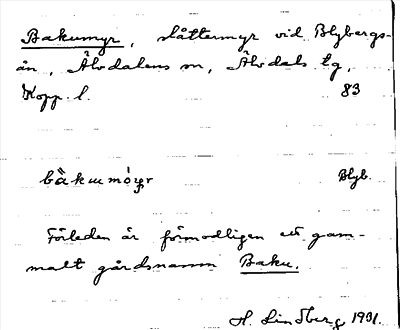 Bakumyr, slåttermyr vid Blybergs-
ån, Älvdalens sn, Älvdals tg,
Kopp. l. 83
bàkumỳr Blyb.
Förleden är förmodligen ett gam-
malt gårdsnamn Baku.
H. Lindberg 1931.